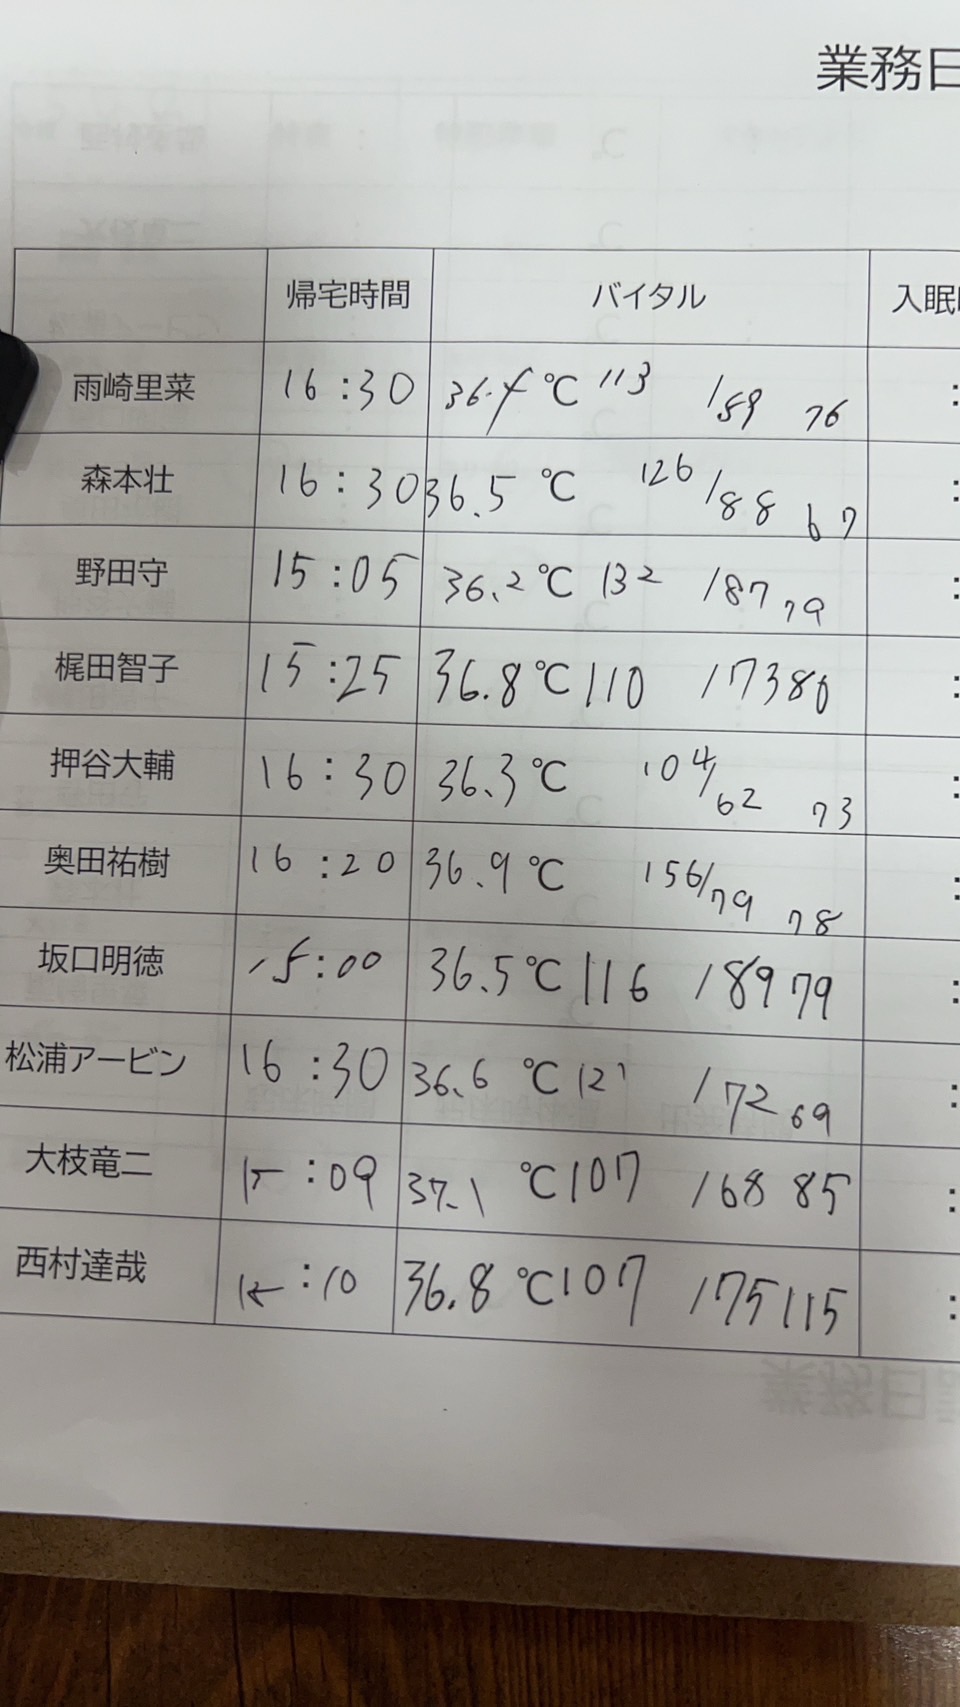 業務日
帰宅時間 バイタル 入眠
雨崎里菜 16:30 36. ℃ 113 /59 76 :
森本壮 16:30 36.5 ℃ 126/88 67 :
野田守 15:05 36.2 ℃ 132 /87 79 :
梶田智子 15:25 36.8 ℃ 110 /73 80 :
押谷大輔 16:30 36.3 ℃ 104/62 73 :
奥田祐樹 16:20 36.9 ℃ 156/79 78 :
坂口明徳 15:00 36.5 ℃ 116 /89 79 :
松浦アービン 16:30 36.6 ℃ 121 /72 69 :
大枝竜二 15:09 37.1 ℃ 107 /68 85 :
西村達哉 :10 36.8 ℃ 107 /75 115 :